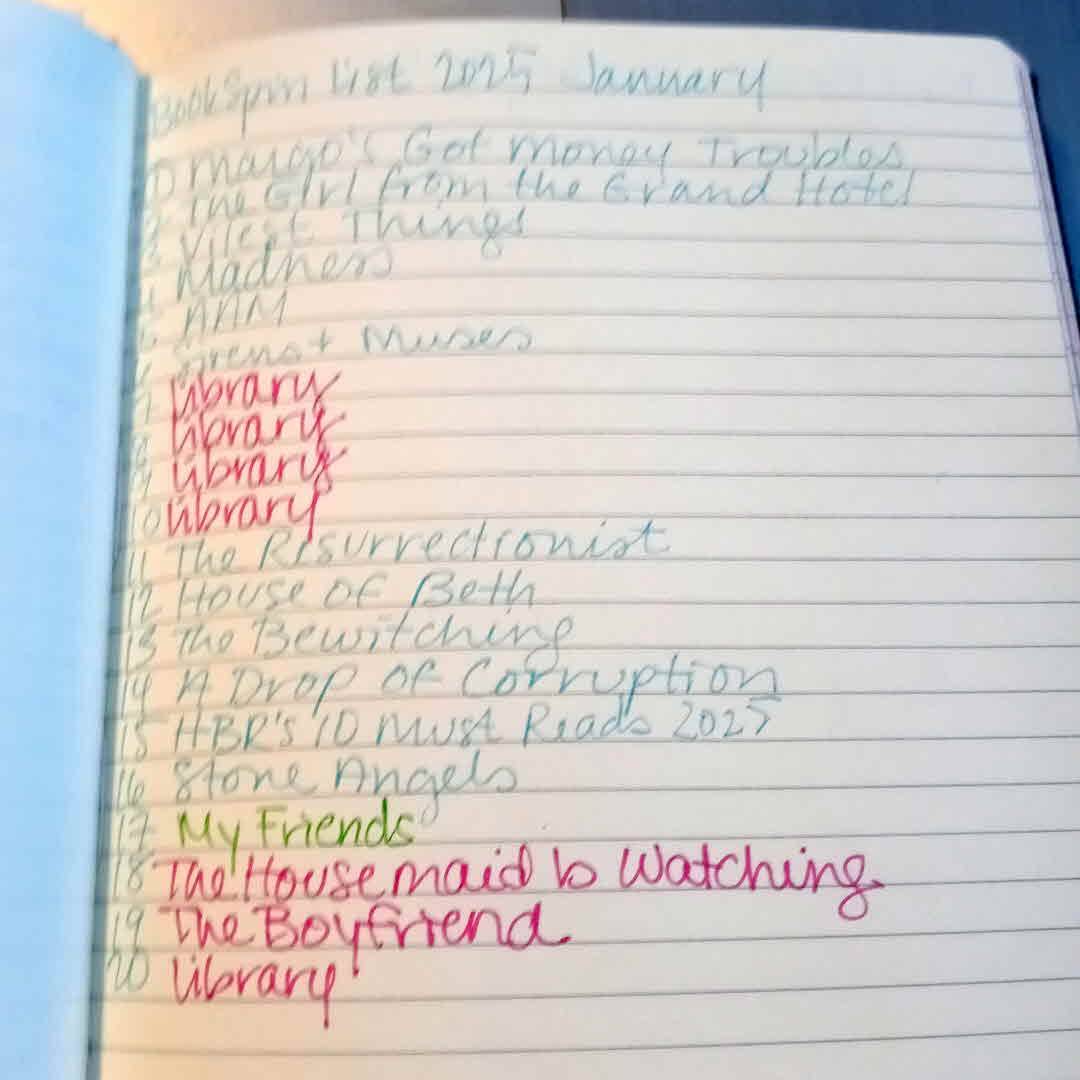 BookSpin List 2025 January
1 Margo's Got Money Troubles
2 The Girl from the Grand Hotel
3 Vilest Things
4 Madness
5 AAM
6 Sirens + Muses
7 Library
8 Library
9 Library
10 Library
11 The Resurrectionist
12 House of Beth
13 The Bewitching
14 A Drop of Corruption
15 HBR's 10 Must Reads 2025
16 Stone Angels
17 My Friends
18 The Housemaid Is Watching
19 The Boyfriend
20 Library